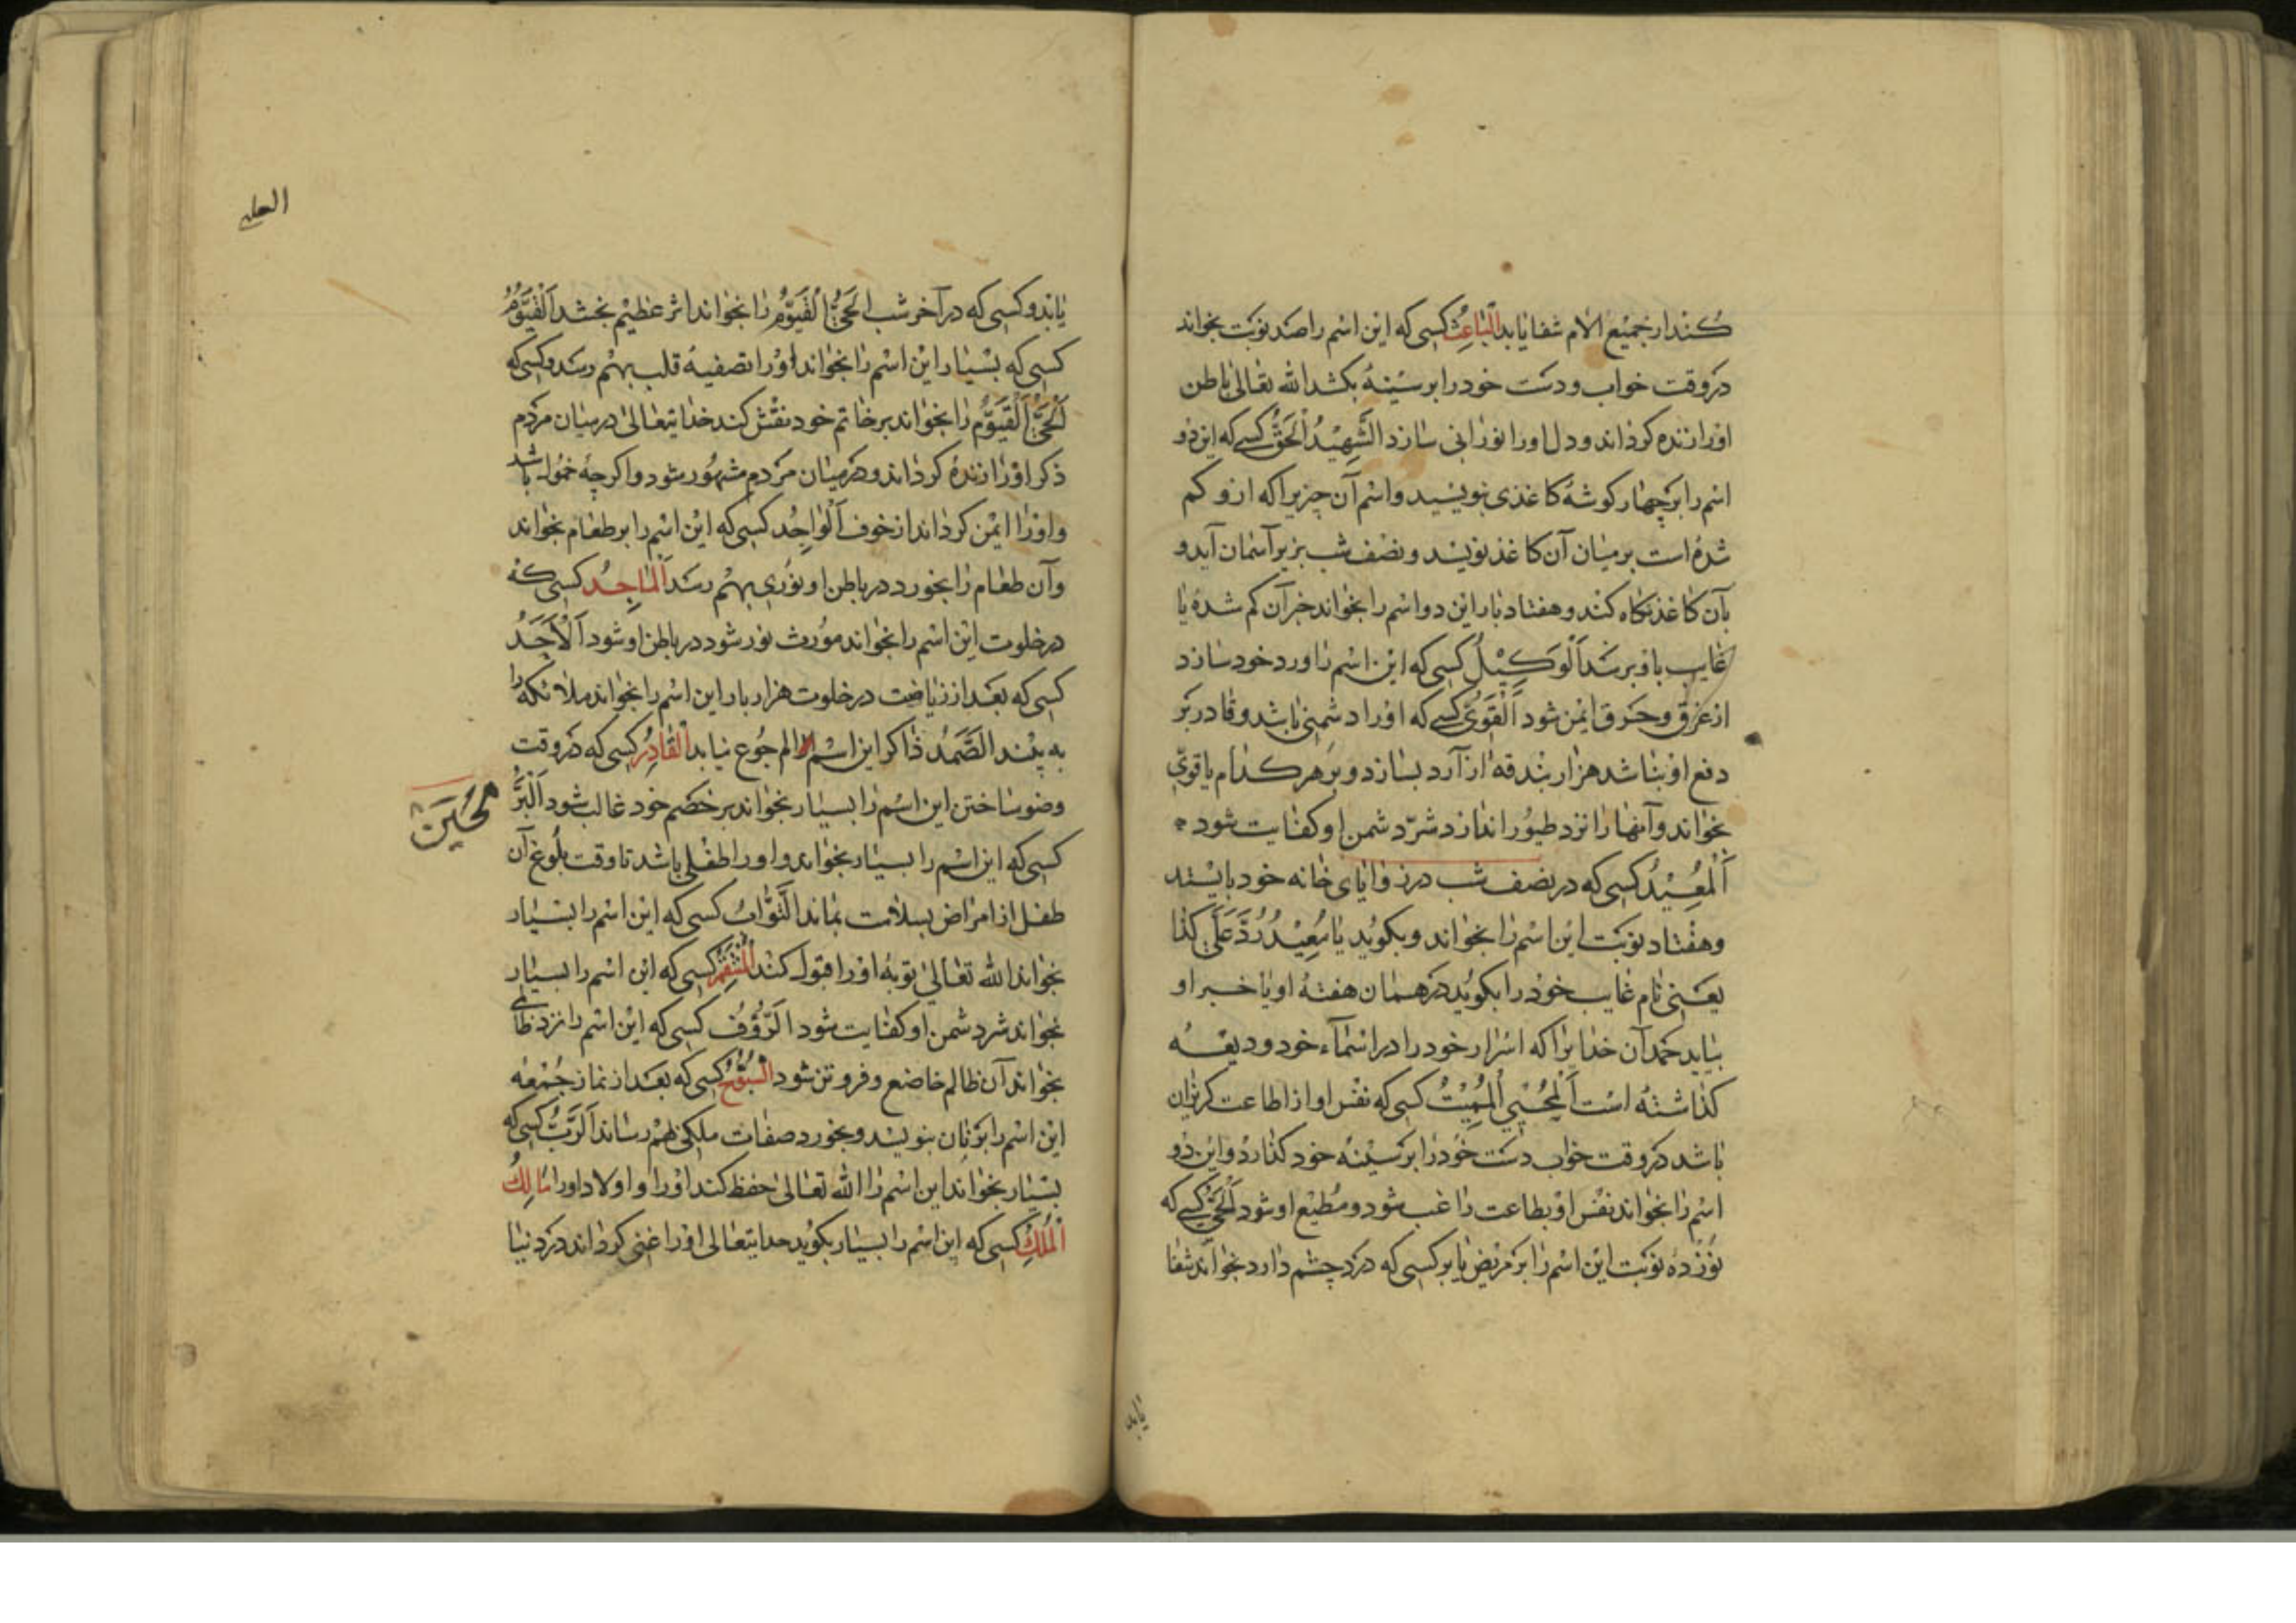 کند از جمیع الام شفا یابد اَلْبَاعِثُ کسی که این اسم را صد نوبت بخواند
در وقت خواب و دست خود را بر سینهٔ بکشد الله تعالی باطن
او را زنده کرداند و دل او را نورانی سازد الشَّهِیْدُ اَلْحَقُّ کسی که این دو
اسم را بر چهار کوشهٔ کاغذی بنویسید و اسم آن چیزیرا که ازو کم
شده است بر میان آن کاغذ نویسد و نصف شب بزیر آسمان آید و
بآن کاغذ نکاه کند و هفتاد بار این دو اسم را بخواند خبر آن کم شده یا
غایب باو برسد اَلْوَکِیْلُ کسی که این اسم را ورد خود سازد
از غرق و حرق ایمن شود اَلْقَوِیُّ کسی که او را دشمنی باشد و قادر بر
دفع او نباشد هزار بندقه از آرد بسازد و بر هر کدام یا قوی
بخواند و آنها را نزد طیور اندازد شرّ دشمن او کفایت شود
اَلْمُعِیْدُ کسی که در نصف شب در زوایای خانه خود بایستد
و هفتاد نوبت این اسم را بخواند و بکوید یا مُعِیْدُ رُدَّ عَلَیَّ کذا
یعنی نام غایب خود را بکوید در همان هفته او یا خبر او
بیاید حمد آن خدایرا که اسرار خود را در اسمآء خود ودیعه
کذاشته است اَلْمُحْیِی اَلْمُمِیْتُ کسی که نفس او از اطاعت کریزان
باشد در وقت خواب دست خود را بر سینه خود کذارد و این دو
اسم را بخواند نفس او بطاعت راغب شود و مطیع او شود اَلْحَیُّ کسی که
نوزده نوبت این اسم را بر مریض یا بر کسی که درد چشم دارد بخواند شفا
یابد
یابد و کسی که در آخر شب اَلْحَیُّ اَلْقَیُّوْمُ را بخواند اثر عظیم بخشد اَلْقَیُّوْمُ
کسی که بسیار این اسم را بخواند او را تصفیهٔ قلب بهم رسد و کسی که
اَلْحَیُّ اَلْقَیُّوْمُ را بخواند بر خاتم خود نقش کند خدایتعالی در میان مردم
ذکر او را زنده کرداند و در میان مردم مشهور شود و اکرچه خمول باشد
و او را ایمن کرداند از خوف اَلْوَاجِدُ کسی که این اسم را بر طعام بخواند
و آن طعام را بخورد در باطن او نوری بهم رسد اَلْمَاجِدُ کسی که
در خلوت این اسم را بخواند مورث نور شود در باطن او شود اَلْاَحَدُ
کسی که بعد از ریاضت در خلوت هزار بار این اسم را بخواند ملائکه را
به بیند الصَّمَدُ ذاکر این اسم الم جوع نیابد اَلْقَادِرُ کسی که در وقت
وضو ساختن این اسم را بسیار بخواند بر خصم خود غالب شود اَلْبَرُّ
کسی که این اسم را بسیار بخواند و او را طفلی باشد تا وقت بلوغ آن
طفل از امراض بسلامت بماند التَّوَّابُ کسی که این اسم را بسیار
بخواند الله تعالی توبهٔ او را قبول کند اَلْمُنْتَقِمُ کسی که این اسم را بسیار
بخواند شر دشمن او کفایت شود الرَّؤُفُ کسی که این اسم را نزد ظالمی
بخواند آن ظالم خاضع و فروتن شود السُّبُّوْحُ کسی که بعد از نماز جمعه
این اسم را بر نان بنویسد و بخورد صفات ملکی بهم رساند اَلرَّبُّ کسی که
بسیار بخواند این اسم را الله تعالی حفظ کند او را و اولاد او را مَالِكُ
اَلْمُلْكِ کسی که این اسم را بسیار بکوید خدایتعالی او را غنی کرداند در دنیا